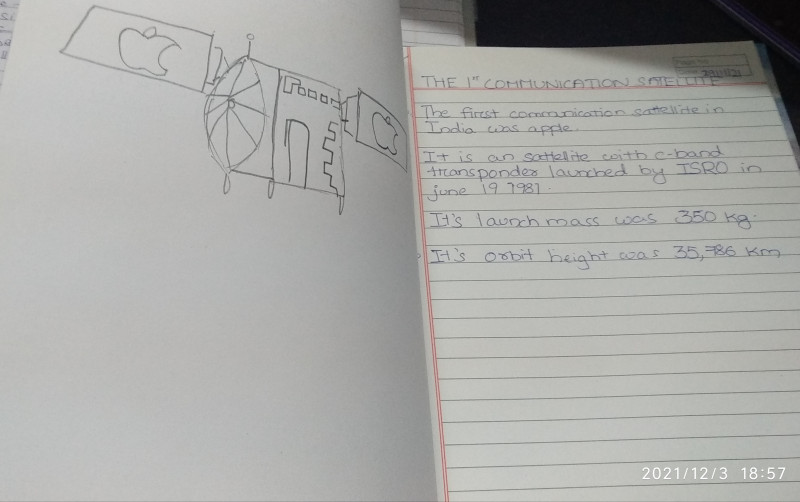 THE 1st COMMUNICATION SATELLITE
The first communication sattellite in
India was apple.
It is an sattelite with c-band
transponder launched by ISRO in
june 19 1981.
It's launch mass was 350 kg.
It's orbit height was 35,786 Km
2021/12/3 18:57